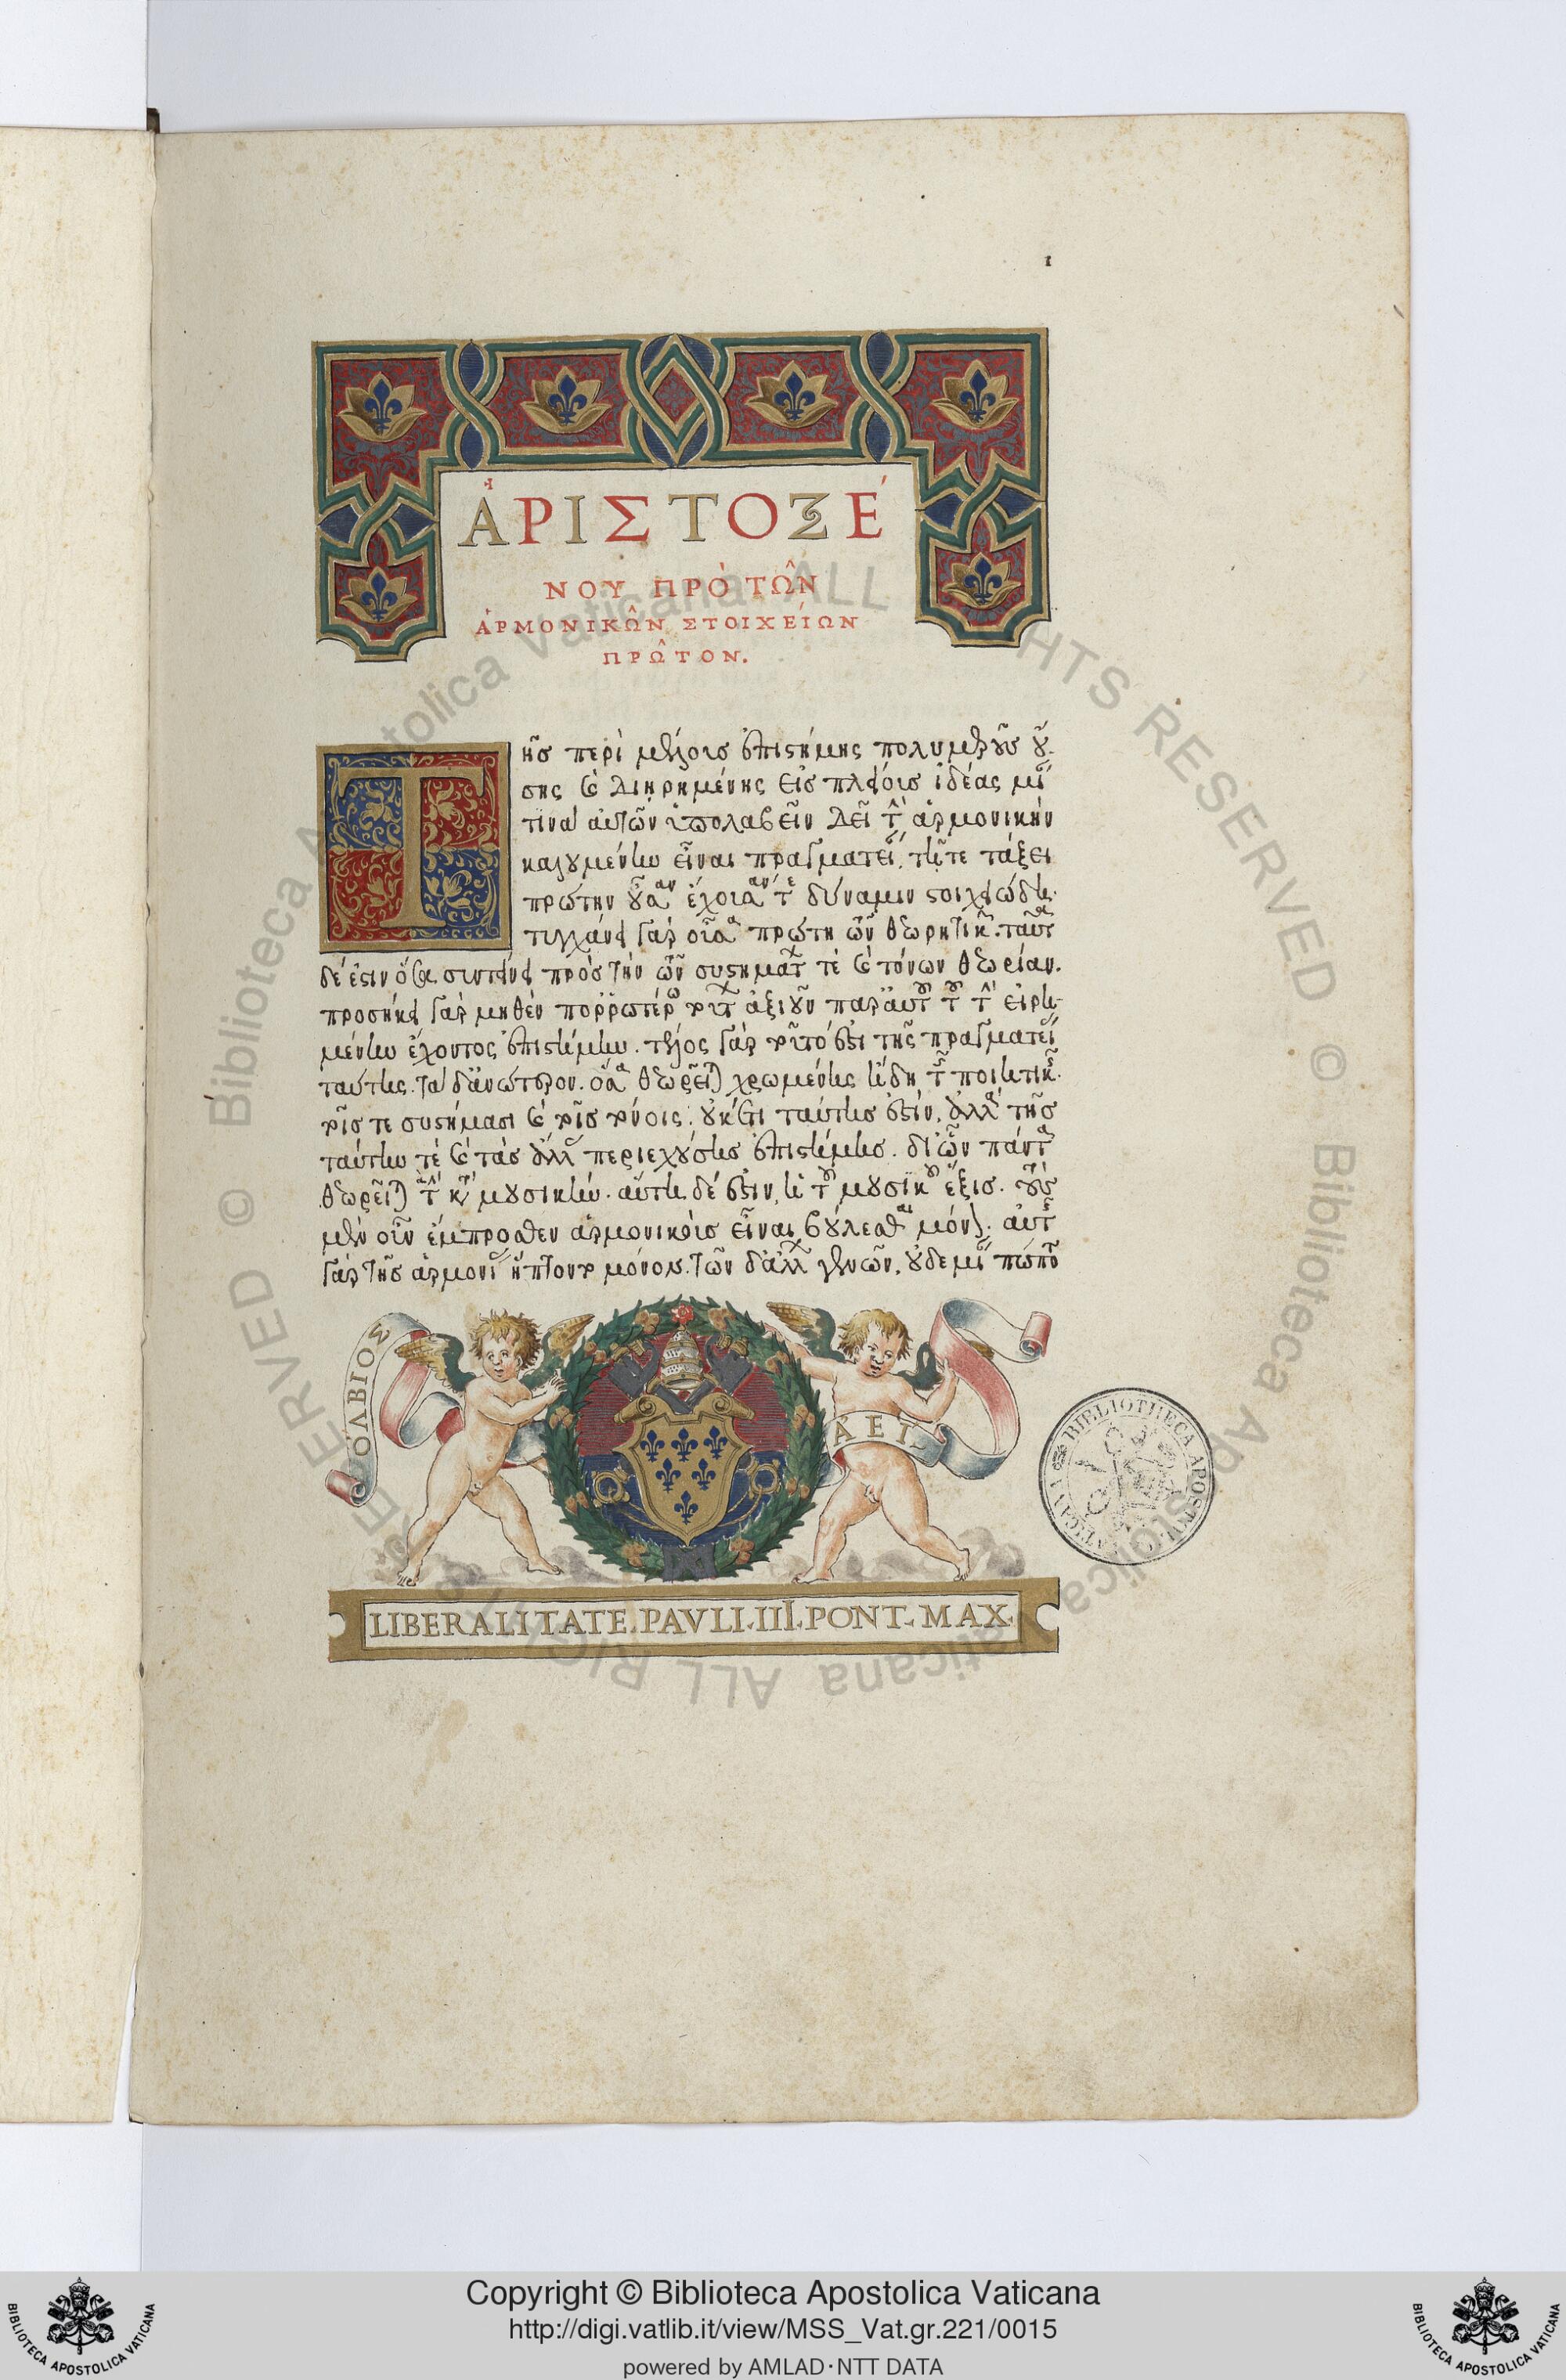 1
ἈΡΙΣΤΟΞΈ
ΝΟΥ ΠΡῸ ΤΩ͂Ν
ἉΡΜΟΝΙΚΩ͂Ν ΣΤΟΙΧΕΊΩΝ
ΠΡΩ͂ΤΟΝ.
Τῆς περὶ μέλους ἐπιστήμης πολυμεροῦς οὔ
σης καὶ διῃρημένης εἰς πλείους ἰδέας μίαν
τινὰ αὐτῶν ὑπολαβεῖν δεῖ τὴν ἁρμονικὴν
καλουμένην εἶναι πραγματείαν, τῇ τε τάξει
πρώτην οὖσαν ἔχουσάν τε δύναμιν στοιχειώδη.
τυγχάνει γὰρ οὖσα πρώτη τῶν θεωρητικῶν. ταῦτα
δέ ἐστιν ὅσα συντείνει πρὸς τὴν τῶν συστημάτων τε καὶ τόνων θεωρίαν.
προσήκει γὰρ μηθὲν πορρωτέρω τούτων ἀξιοῦν παρ' αὐτοῦ τοῦ τὴν εἰρη
μένην ἔχοντος ἐπιστήμην. τέλος γὰρ τοῦτό ἐστι τῆς πραγματείας
ταύτης. τὰ δ' ἀνώτερον. ὅσα θεωρεῖται χρωμένης ἤδη τῆς ποιητικῆς
τοῖς τε συστήμασι καὶ τοῖς τόνοις, οὐκέτι ταύτης ἐστίν, ἀλλὰ τῆς
ταύτην τε καὶ τὰς ἄλλας περιεχούσης ἐπιστήμης. δι' ὧν πάντα
θεωρεῖται τὰ κατὰ μουσικήν. αὕτη δέ ἐστιν, ἡ τοῦ μουσικοῦ ἕξις. τοὺς
μὲν οὖν ἔμπροσθεν ἁρμονικοὺς εἶναι βούλεσθαι μόνον. αὐτῆς
γὰρ τῆς ἁρμονίας ἥπτοντο μόνον. τῶν δ' ἄλλων γενῶν, οὐδεμίαν πώποτε
ὈΛΒΙΟΣ
ἈΕΙ
LIBERALITATE. PAVLI. III. PONT. MAX.
BIBLIOTHECA APOST. VATICANA
© Biblioteca Apostolica Vaticana ALL RIGHTS RESERVED © Biblioteca Apostolica Vaticana ALL RIGHTS RESERVED
Copyright © Biblioteca Apostolica Vaticana
http://digi.vatlib.it/view/MSS_Vat.gr.221/0015
powered by AMLAD·NTT DATA
BIBLIOTECA APOSTOLICA VATICANA
BIBLIOTECA APOSTOLICA VATICANA